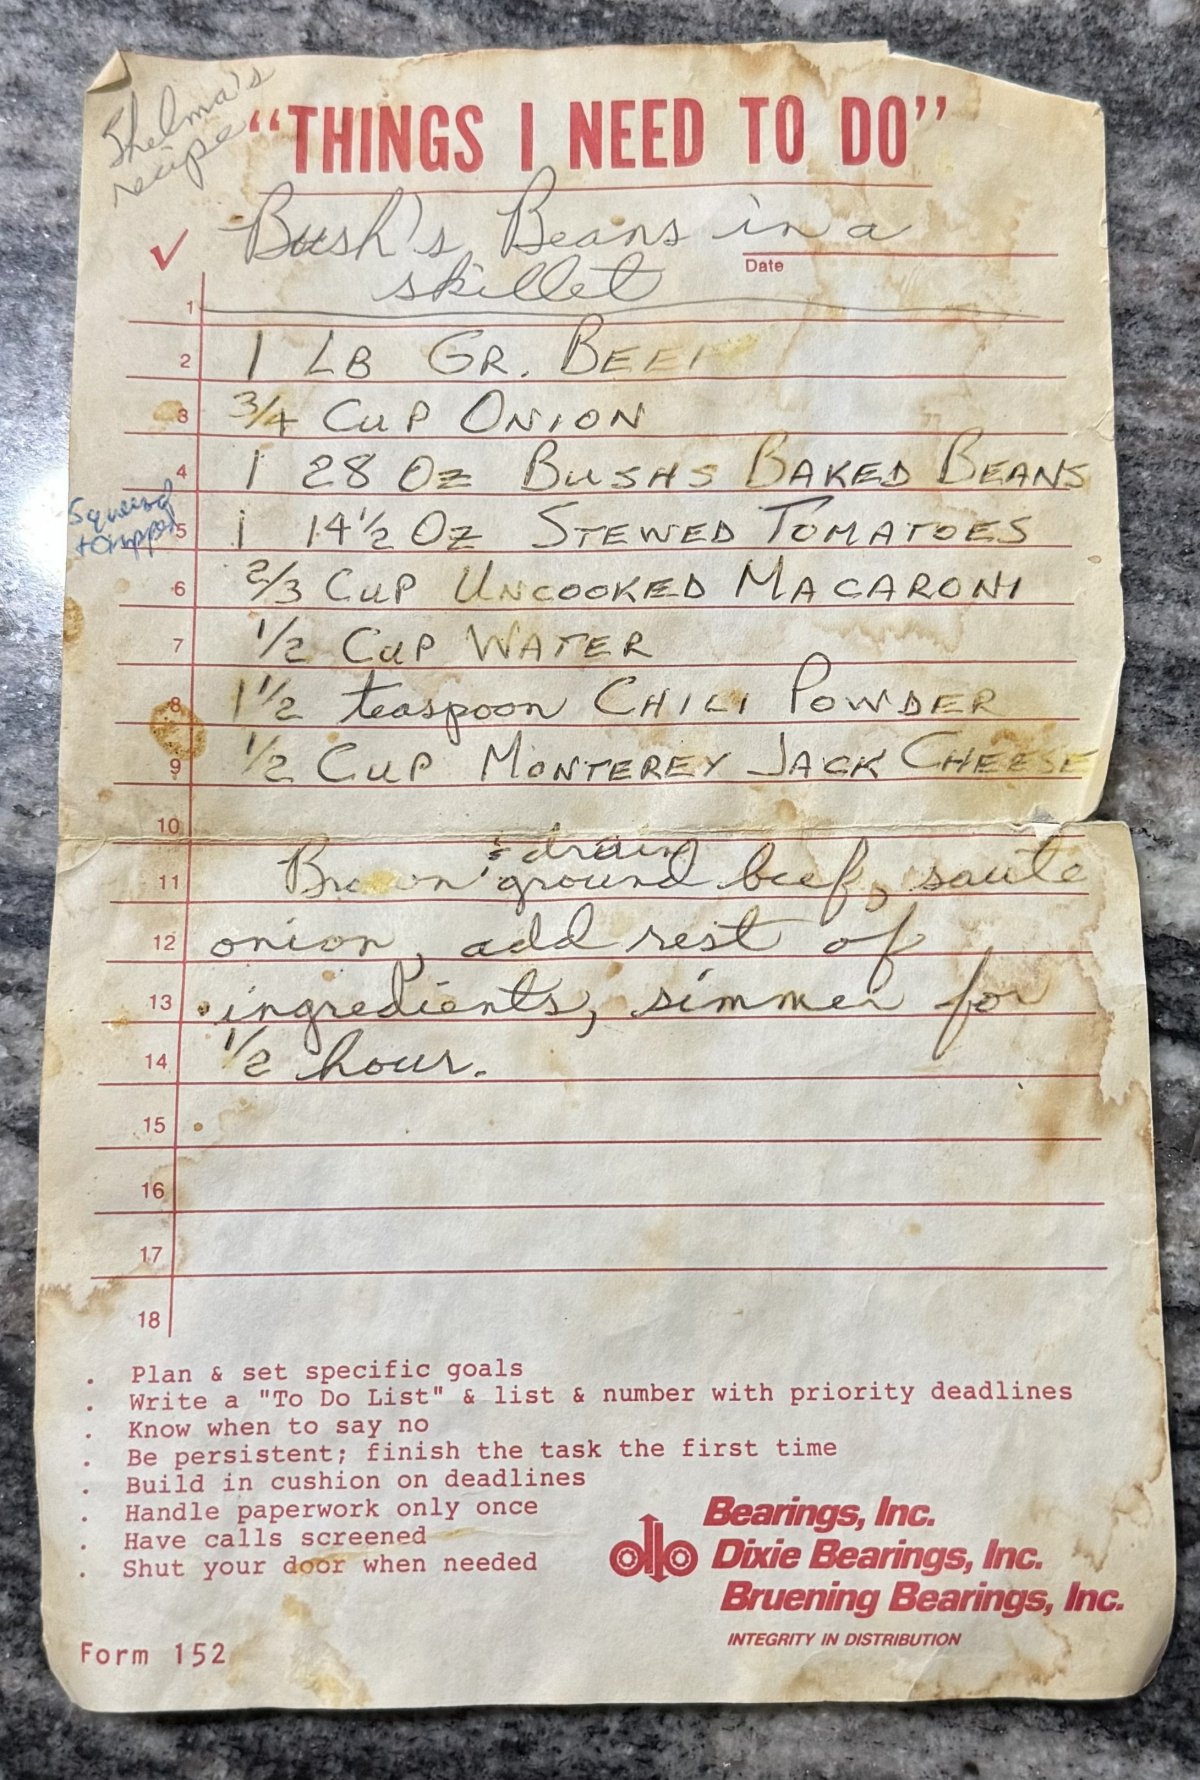 Thelma's
recipe
"THINGS I NEED TO DO"
Bush's Beans in a
skillet
Date
1
2 1 LB GR. BEEF
3 3/4 CUP ONION
4 1 28 OZ BUSHS BAKED BEANS
Squeezed
5 1 14 1/2 OZ STEWED TOMATOES
6 2/3 CUP UNCOOKED MACARONI
7 1/2 CUP WATER
8 1 1/2 teaspoon CHILI POWDER
9 1/2 CUP MONTEREY JACK CHEESE
10
& drain
11 Brown ground beef, saute
12 onion, add rest of
13 ingredients, simmer for
14 1/2 hour.
15
16
17
18
. Plan & set specific goals
. Write a "To Do List" & list & number with priority deadlines
. Know when to say no
. Be persistent; finish the task the first time
. Build in cushion on deadlines
. Handle paperwork only once
. Have calls screened
. Shut your door when needed
Bearings, Inc.
Dixie Bearings, Inc.
Bruening Bearings, Inc.
INTEGRITY IN DISTRIBUTION
Form 152